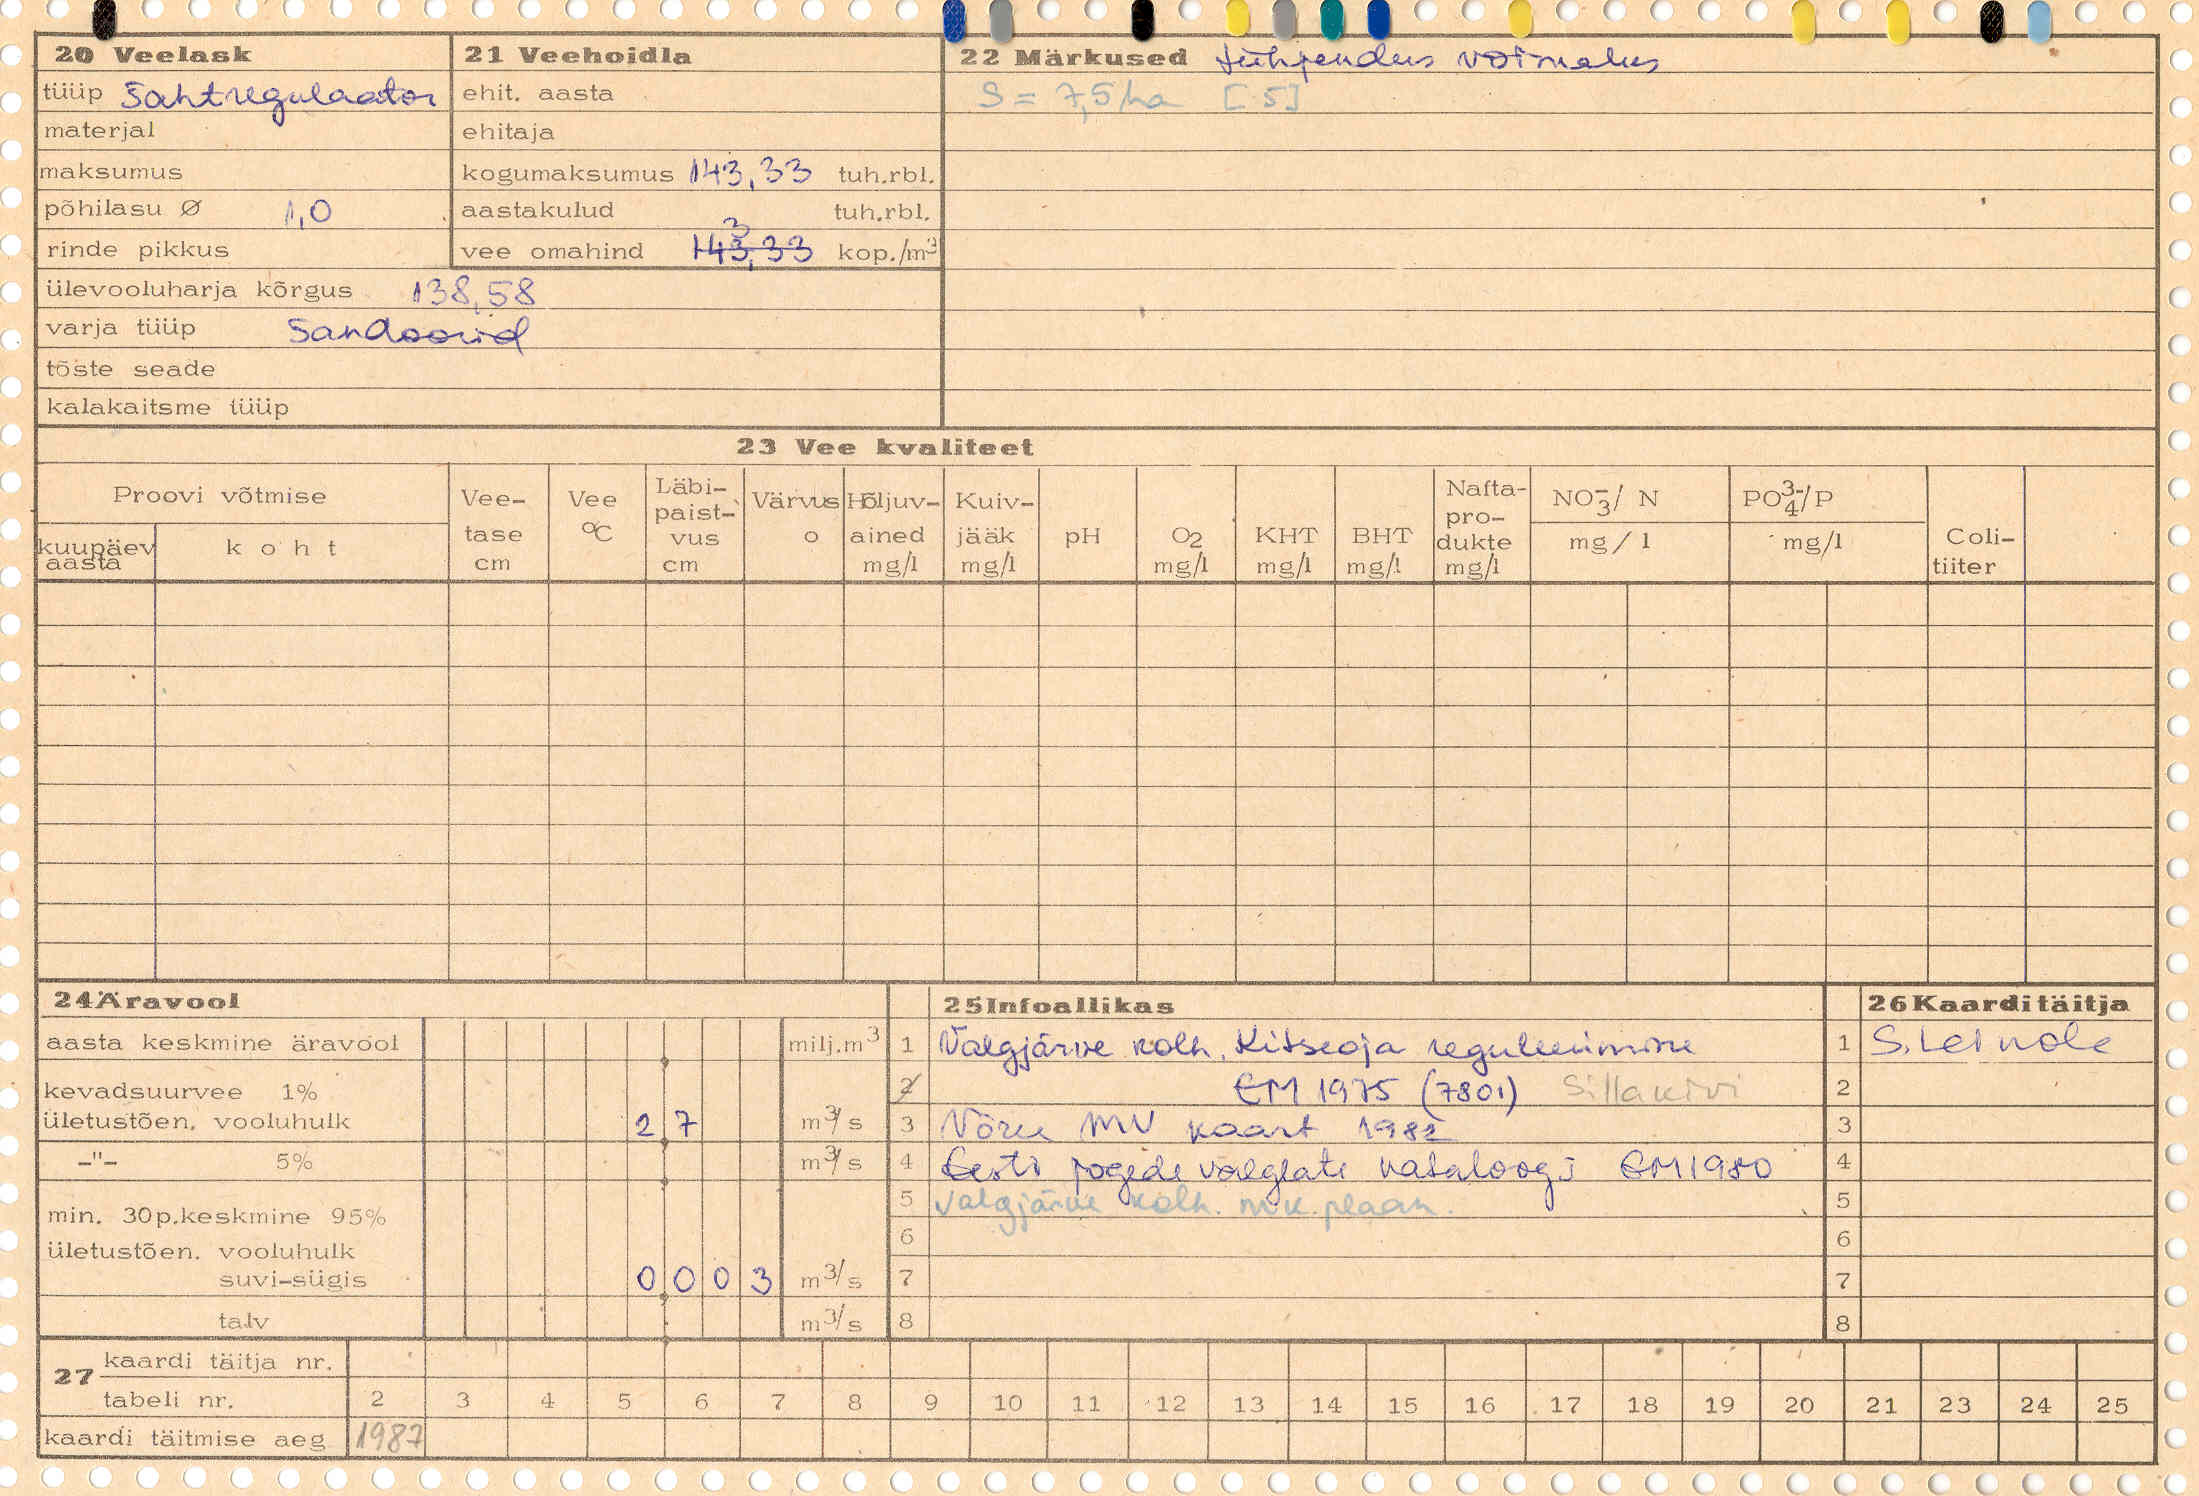 20 Veelask
tüüp šahtregulaator
materjal
maksumus
põhilasu Ø 1,0
rinde pikkus
ülevooluharja kõrgus 138,58
varja tüüp Sandoorid
tõste seade
kalakaitsme tüüp
21 Veehoidla
ehit. aasta
ehitaja
kogumaksumus 143,33 tuh.rbl.
aastakulud tuh.rbl.
3
vee omahind 143,33 kop./m³
22 Märkused tühjendus võimalus
S = 7,5 ha [5]
23 Vee kvaliteet
Proovi võtmise
kuupäev aasta
koht
Vee-
tase
cm
Vee
°C
Läbi-
paist-
vus
cm
Värvus
o
Hõljuv-
ained
mg/l
Kuiv-
jääk
mg/l
pH
O2
mg/l
KHT
mg/l
BHT
mg/l
Nafta-
pro-
dukte
mg/l
NO₃⁻/ N
mg/l
PO₄³⁻/P
mg/l
Coli-
tiiter
24 Äravool
aasta keskmine äravool milj.m³
kevadsuurvee 1%
ületustõen. vooluhulk 2 7 m³/s
-"- 5% m³/s
min. 30p.keskmine 95%
ületustõen. vooluhulk
suvi-sügis 0 0 0 3 m³/s
talv m³/s
25 Infoallikas
1 Valgjärve kolh. Kitseoja reguleerimine
2 EM 1975 (7801) Sillakivi
3 Võru MV kaart 1982
4 Eesti jõgede valglate kataloog EM 1980
5 Valgjärve kolh. m.k. plaan.
6
7
8
26 Kaarditäitja
1 S. Leinola
2
3
4
5
6
7
8
27 kaardi täitja nr.
tabeli nr. 2 3 4 5 6 7 8 9 10 11 12 13 14 15 16 17 18 19 20 21 23 24 25
kaardi täitmise aeg 1987